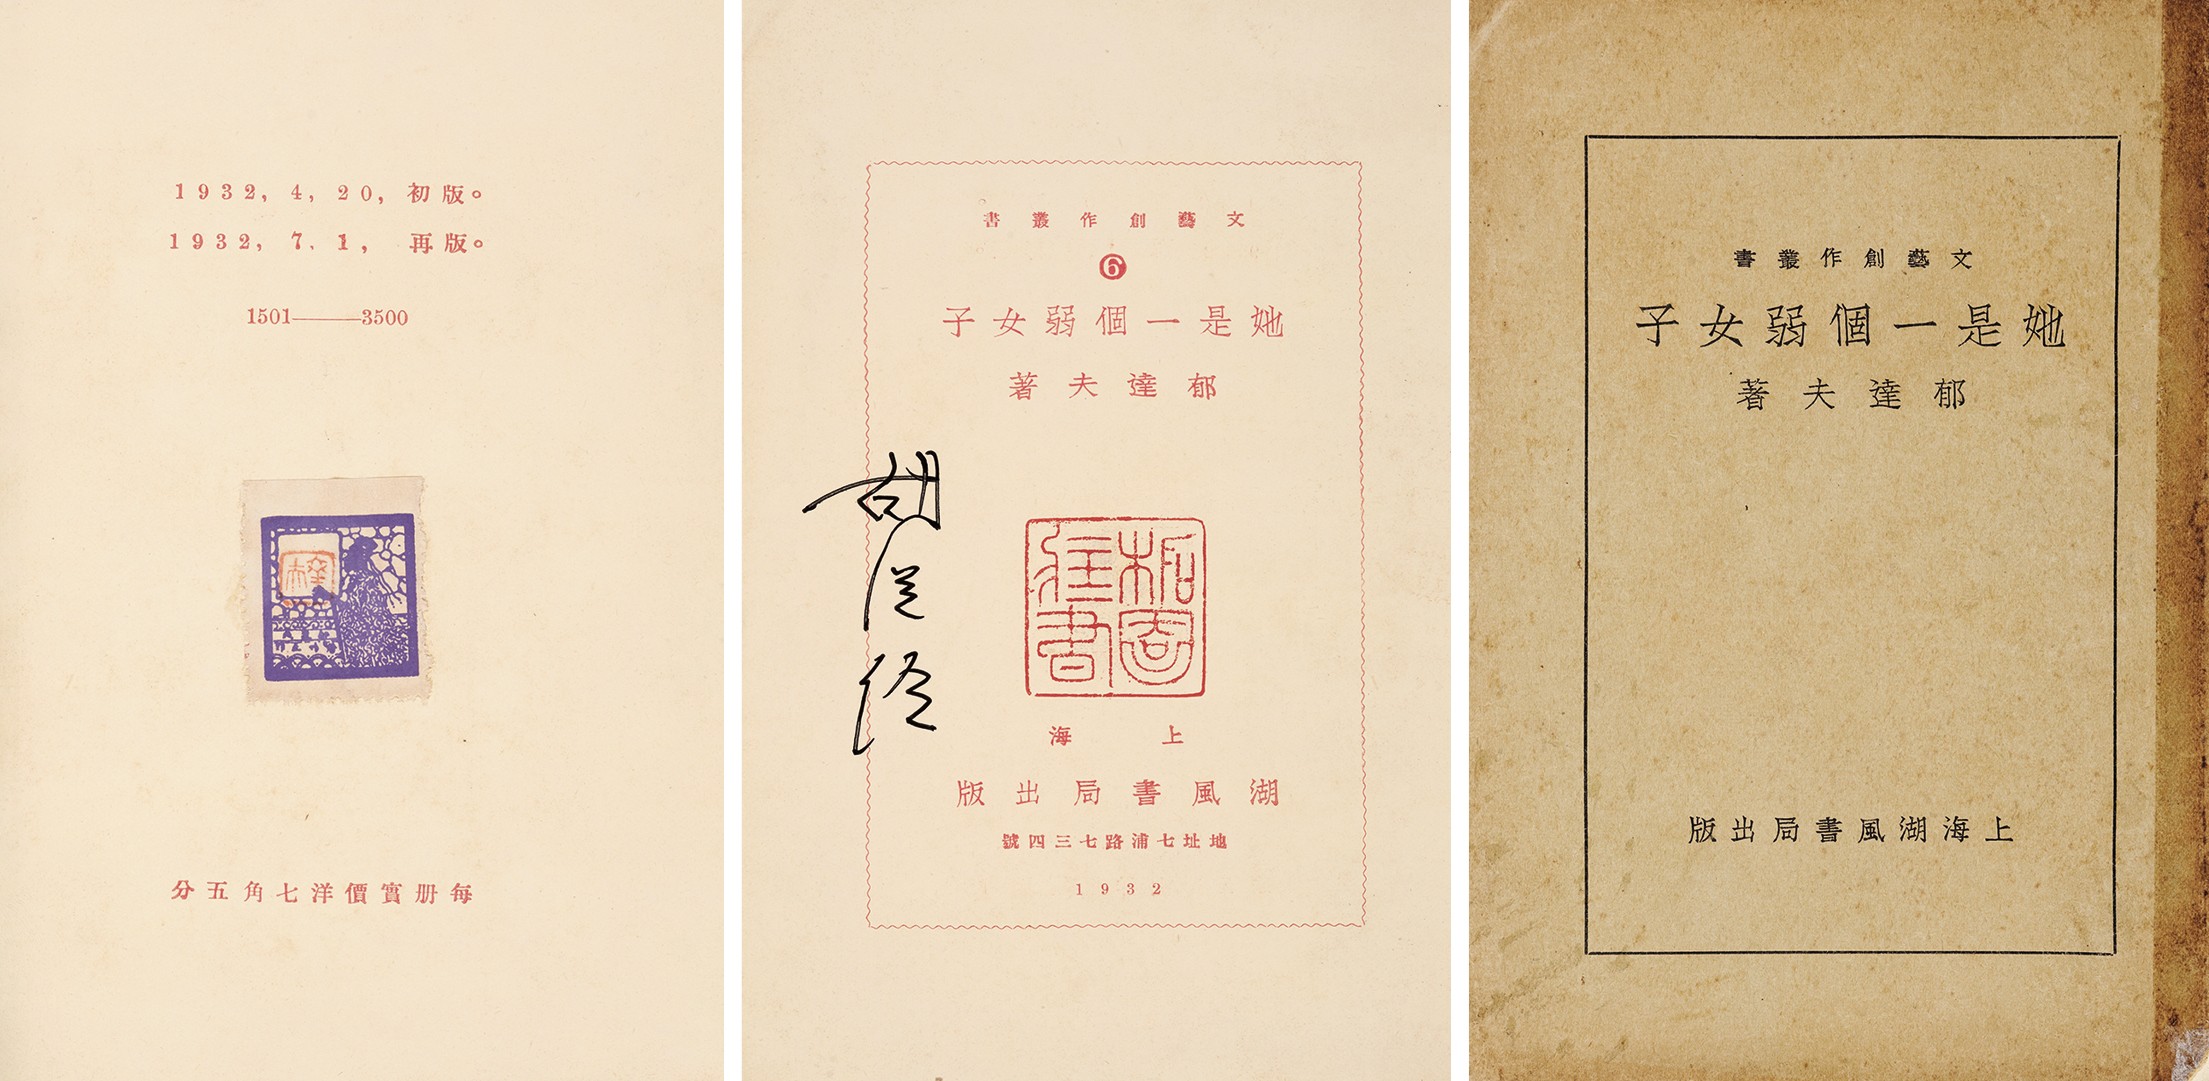 1932, 4, 20, 初版。
1932, 7. 1, 再版。
1501——3500
每册實價洋七角五分
文藝創作叢書
6
她是一個弱女子
郁達夫著
胡从经
上海
湖風書局出版
地址七浦路七三四號
1932
文藝創作叢書
她是一個弱女子
郁達夫著
上海湖風書局出版